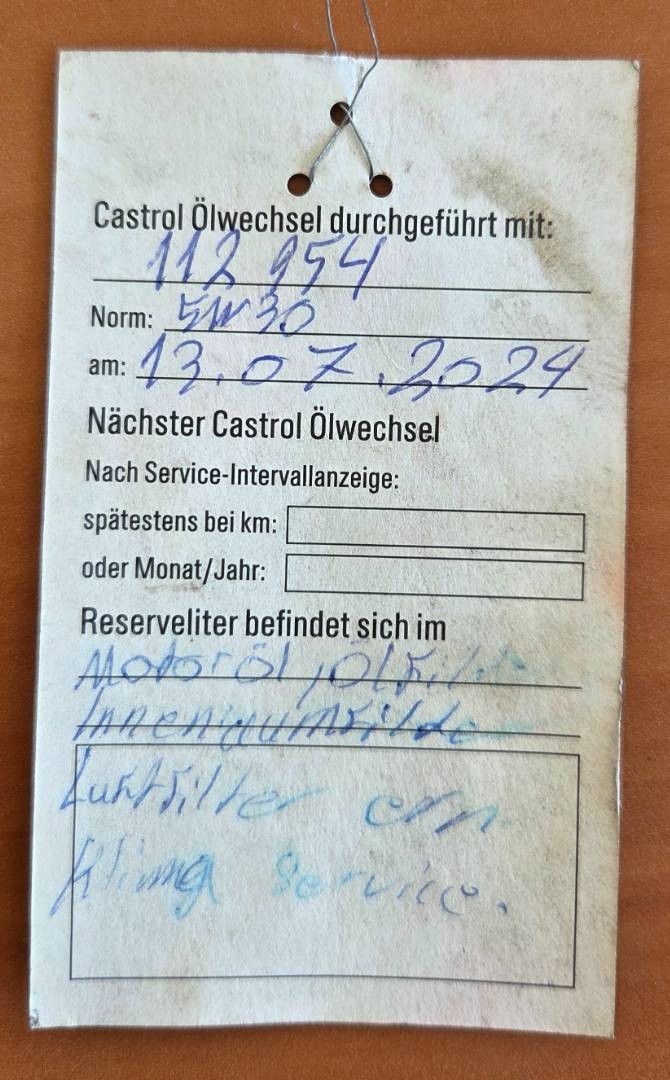 Castrol Ölwechsel durchgeführt mit:
112 954
Norm: 5W30
am: 13.07.2024
Nächster Castrol Ölwechsel
Nach Service-Intervallanzeige:
spätestens bei km:
oder Monat/Jahr:
Reserveliter befindet sich im
Motoröl, Ölfilter
Innenraumfilde
Luftfilter ern
Klima Service.